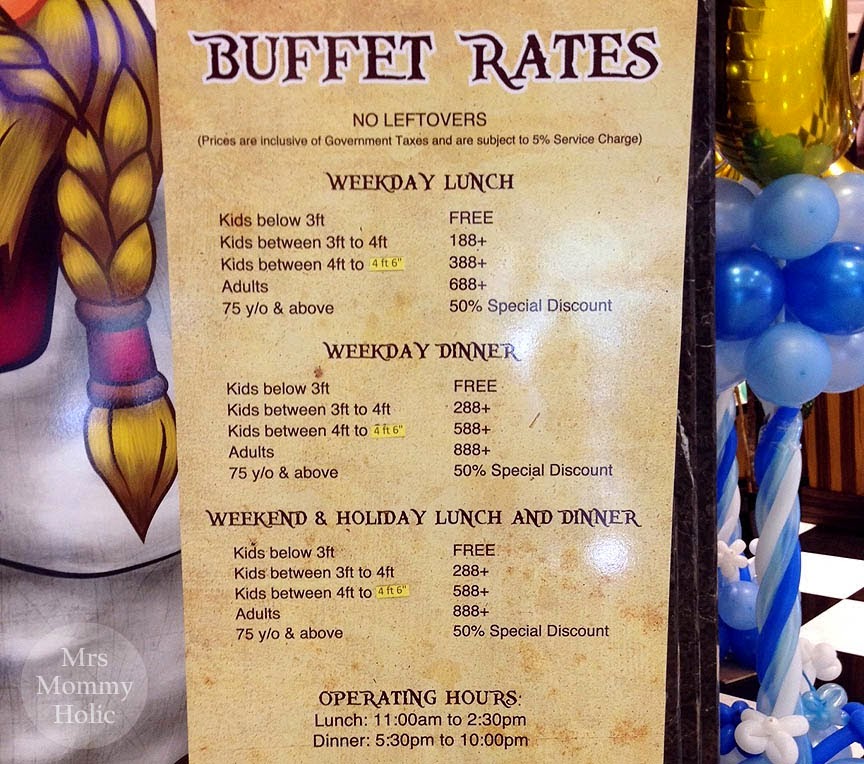 BUFFET RATES
NO LEFTOVERS
(Prices are inclusive of Government Taxes and are subject to 5% Service Charge)
WEEKDAY LUNCH
Kids below 3ft FREE
Kids between 3ft to 4ft 188+
Kids between 4ft to 4 ft 6" 388+
Adults 688+
75 y/o & above 50% Special Discount
WEEKDAY DINNER
Kids below 3ft FREE
Kids between 3ft to 4ft 288+
Kids between 4ft to 4 ft 6" 588+
Adults 888+
75 y/o & above 50% Special Discount
WEEKEND & HOLIDAY LUNCH AND DINNER
Kids below 3ft FREE
Kids between 3ft to 4ft 288+
Kids between 4ft to 4 ft 6" 588+
Adults 888+
75 y/o & above 50% Special Discount
OPERATING HOURS:
Lunch: 11:00am to 2:30pm
Dinner: 5:30pm to 10:00pm
Mrs
Mommy
Holic